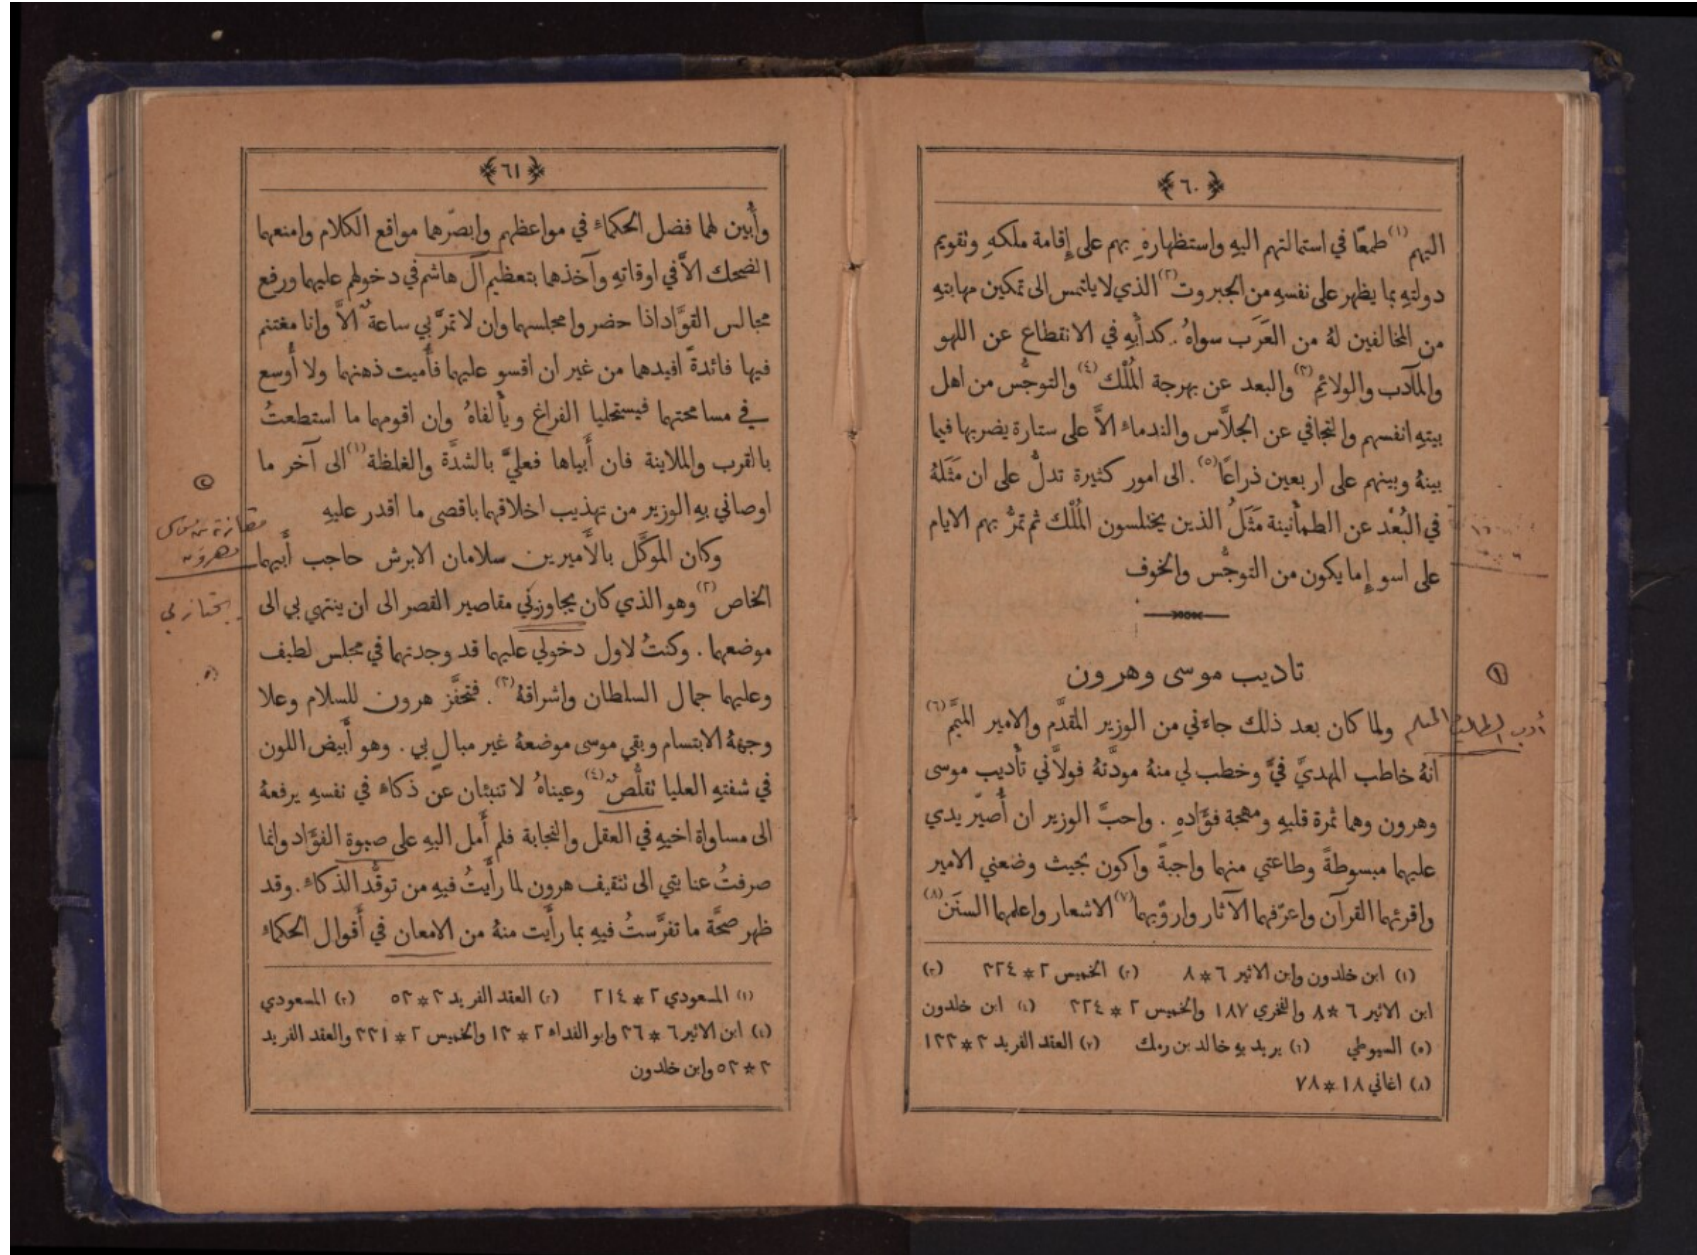 ﴿٦٠﴾
اليهم (١) طمعًا في استمالتهم اليهِ واستظهارهِ بهم على إقامة ملكهِ وتقويم
دولتهِ بما يظهر على نفسهِ من الجبروت (٢) الذي لا يلتمس الى تمكين مهابتهِ
من المخالفين لهُ من العَرَب سواهُ. كدأبهِ في الانقطاع عن اللهو
والمآدب والولائم (٣) والبعد عن بهرجة المُلْك (٤) والتوجُّس من اهل
بيتهِ انفسهم والتجافي عن الجلَّاس والندماء الاَّ على ستارة يضربها فيما
بينهُ وبينهم على اربعين ذراعًا (٥). الى امور كثيرة تدلُّ على ان مَثَلهُ
في البُعْد عن الطمأنينة مَثَلُ الذين يختلسون المُلْك ثم تمرُّ بهم الايام
على اسوإِ ما يكون من التوجُّس والخوف
تاديب موسى وهرون
①
أدب الطالب المسلم
ولما كان بعد ذلك جاءني من الوزير المقدَّم والامير الميمَّم (٦)
انهُ خاطب المهديَّ فيَّ وخطب لي منهُ مودَّتهُ فولاَّني تأديب موسى
وهرون وهما ثمرة قلبهِ ومهجة فؤادهِ. واحبَّ الوزير ان أُصيّر يدي
عليهما مبسوطةً وطاعتي منهما واجبةً واكون بحيث وضعني الامير
واقرئهما القرآن واعرّفهما الآثار واروّيهما (٧) الاشعار واعلمهما السنَن (٨)
(١) ابن خلدون وابن الاثير ٦*٨ (٢) الخميس ٢*٣٢٤ (٣)
ابن الاثير ٦*٨ والفخري ١٨٧ والخميس ٢*٣٢٤ (٤) ابن خلدون
(٥) السيوطي (٦) يريد بهِ خالد بن رمك (٧) العقد الفريد ٣*١٢٣
(٨) اغاني ١٨*٧٨
﴿٦١﴾
وأُبين لهما فضل الحكماءِ في مواعظهم وابصّرهما مواقع الكلام وامنعهما
الضحك الاَّ في اوقاتهِ وآخذهما بتعظيم آل هاشم في دخولهم عليهما ورفع
مجالس القوَّاد اذا حضروا مجلسهما وان لا تمرَّ بي ساعةٌ الاَّ وانا مغتنم
فيها فائدةً افيدهما من غير ان اقسو عليهما فأُميت ذهنهما ولا أُوسع
في مسامحتهما فيستحليا الفراغ ويألفاهُ وان اقومهما ما استطعتُ
بالقرب والملاينة فان أَبياها فعليَّ بالشدَّة والغلظة (١) الى آخر ما
اوصاني بهِ الوزير من تهذيب اخلاقهما باقصى ما اقدر عليهِ
②
مقارنة بين موسى
وهرون
وكان الموكَّل بالأَميرين سلامان الابرش حاجب أَبيهما
الخاص (٢) وهو الذي كان يجاوزني مقاصير القصر الى ان ينتهي بي الى
يجتاز بي
موضعهما. وكنتُ لاول دخولي عليهما قد وجدتهما في مجلس لطيف
وعليهما جمال السلطان واشراقهُ (٣). فتحفَّز هرون للسلام وعلا
وجههُ الابتسام وبقي موسى موضعهُ غير مبالٍ بي. وهو أَبيض اللون
في شفتهِ العليا تقلُّصٌ (٤) وعيناهُ لا تنبئان عن ذكاء في نفسهِ يرفعهُ
الى مساواة اخيهِ في العقل والنجابة فلم أَمل اليهِ على صبوة الفؤاد وانما
صرفتُ عنايتي الى تثقيف هرون لما رأَيتُ فيهِ من توقُّد الذكاء. وقد
ظهر صحَّة ما تفرَّستُ فيهِ بما رأَيت منهُ من الامعان في أَقوال الحكماء
(١) المسعودي ٢*٢١٤ (٢) العقد الفريد ٣*٥٢ (٣) المسعودي
(٤) ابن الاثير ٦*٣٦ وابو الفداء ٢*١٣ والخميس ٢*٣٣١ والعقد الفريد
٣*٥٢ وابن خلدون